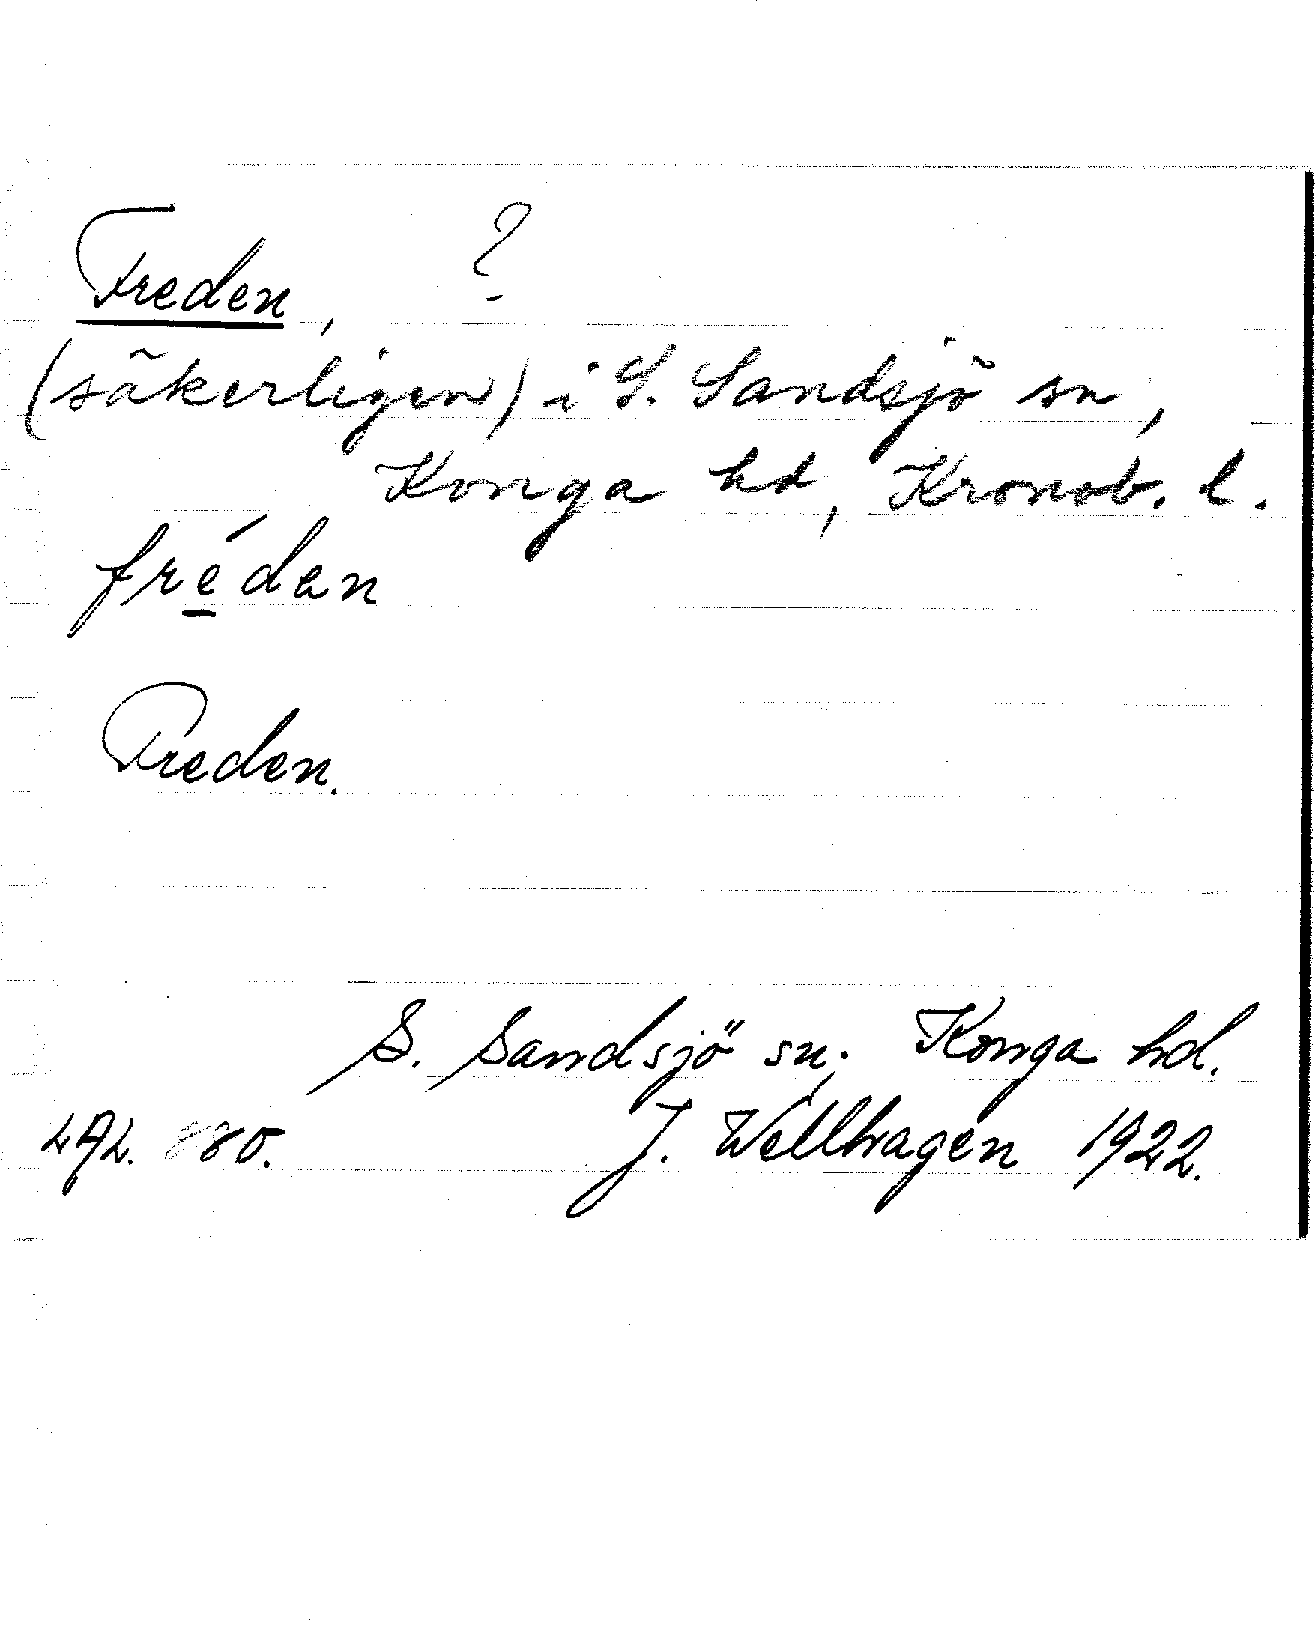 Freden, ?
(säkerligen) i S. Sandsjö sn,
Konga hd, Kronob. l.
fréden
Freden.
S. Sandsjö sn. Konga hd.
LAL. 880. J. Wellhagen 1922.